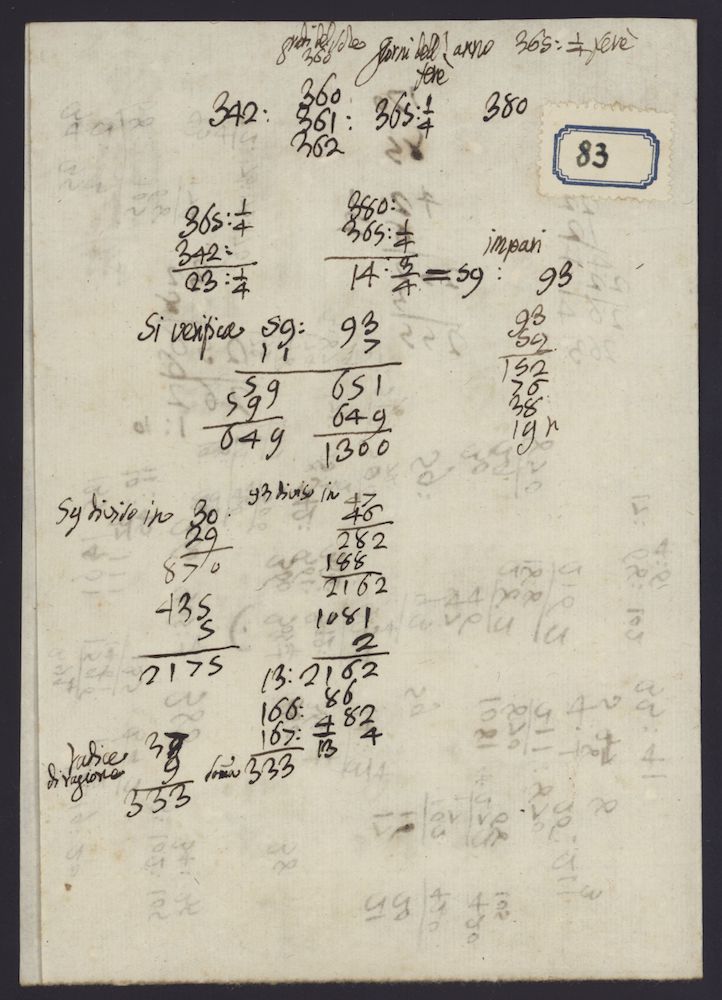 gradi del sole giorni dell'anno 365:¼ ferè
360 ferè
360
342: 361: 365:¼ 380
362
83
365:¼ 380:
342: 365:¼ impari
23:¼ 14·¾ = 59: 93
Si verifica 59: 93 93
11 7 59
59 651 152
59 649 76
649 1300 38
19
59 diviso in 30. 93 diviso in 47
29 46
870 282
188
435 2162
5 1081
2175 2
13: 2162
166: 86
167: 4/13 82
4
radice 37
di ragione 9 soma 333
333